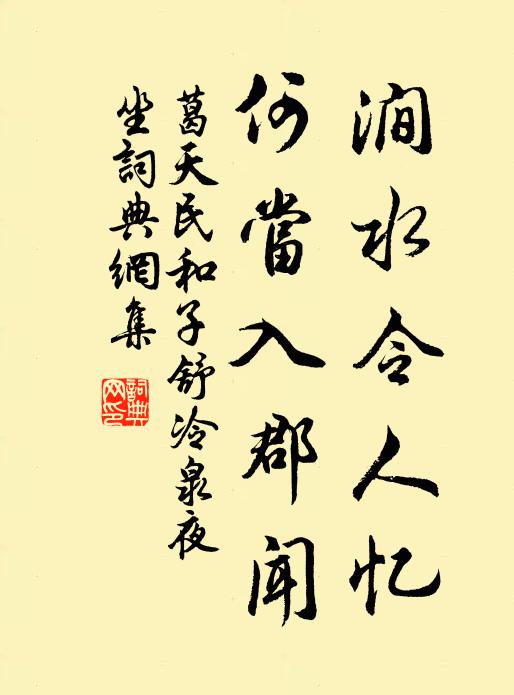 涧水令人忆
何當入郡闻
葛天民和子舒冷泉夜
坐詞典網集
詞典网印